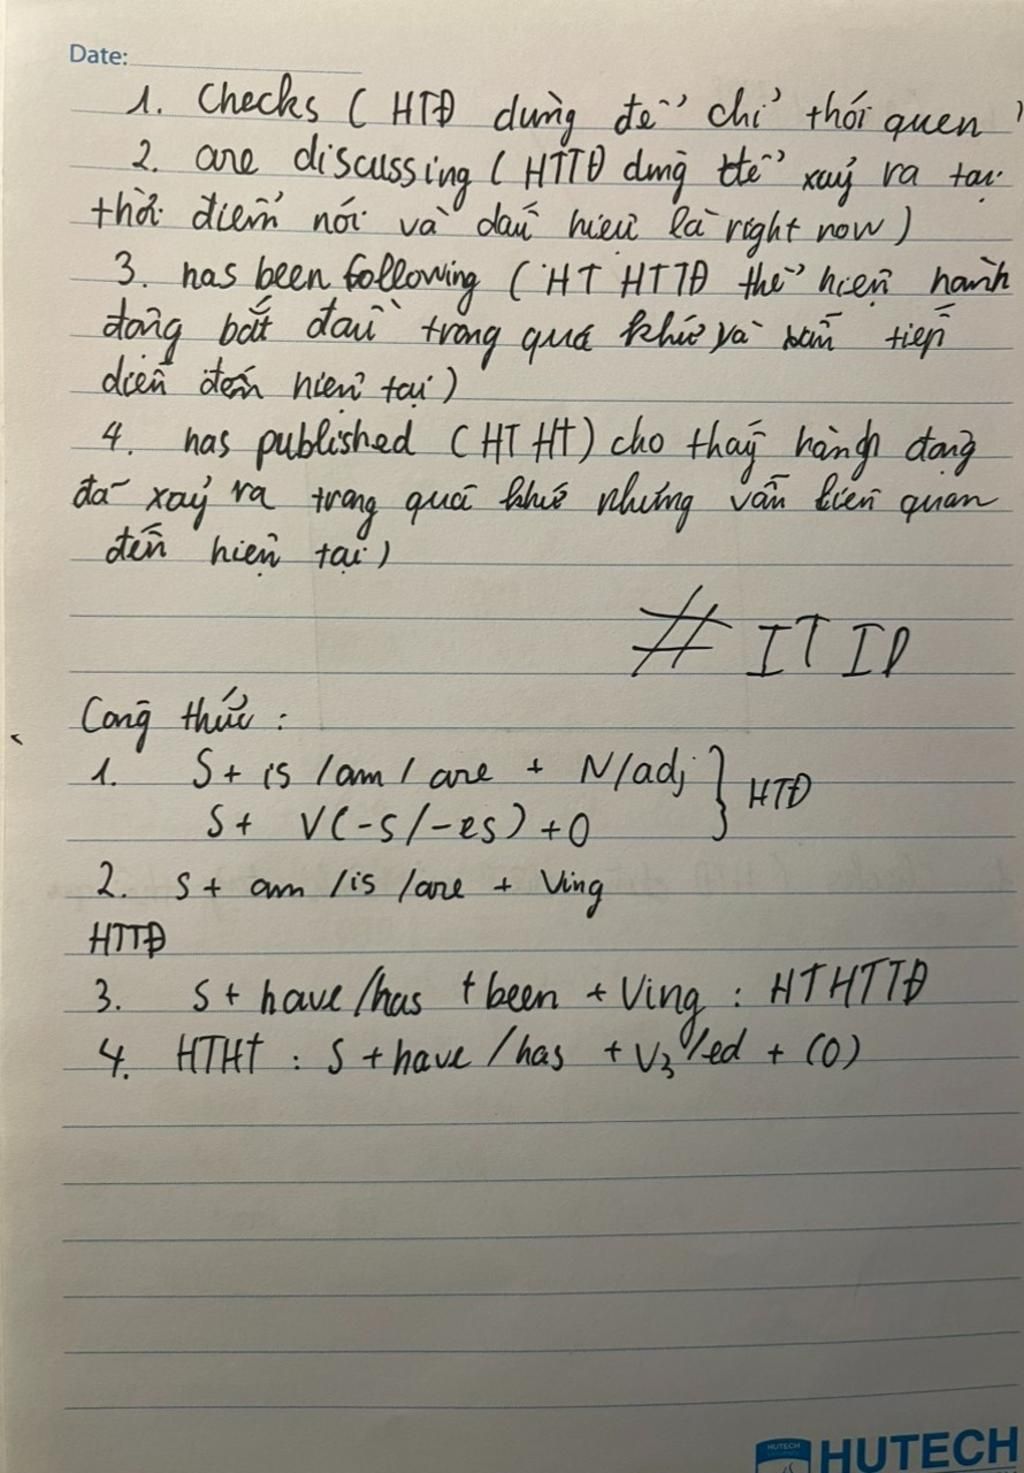 Date:
1. Checks ( HTĐ dùng để chỉ thói quen )
2. are discussing ( HTTĐ dùng để xảy ra tại
thời điểm nói và dấu hiệu là right now )
3. has been following ( HT HTTĐ thể hiện hành
động bắt đầu trong quá khứ và vẫn tiếp
diễn đến hiện tại )
4. has published ( HT HT ) cho thấy hành động
đã xảy ra trong quá khứ nhưng vẫn liên quan
đến hiện tại )
# ITID
Công thức :
1. S + is / am / are + N/adj } HTĐ
S + V(-s/-es) + O
2. S + am / is / are + Ving
HTTĐ
3. S + have/has + been + Ving : HTHTTĐ
4. HTHT : S + have / has + V3/ed + (O)
HUTECH
HUTECH